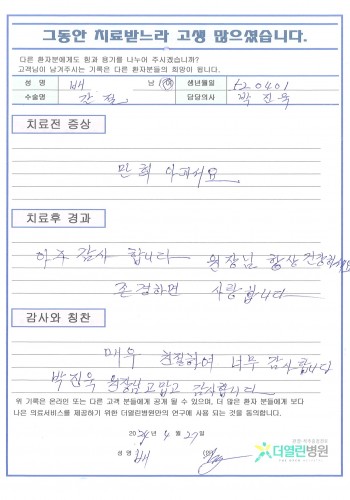 그동안 치료받느라 고생 많으셨습니다.
다른 환자분에게도 힘과 용기를 나누어 주시겠습니까?
고객님이 남겨주시는 기록은 다른 환자분들의 희망이 됩니다.
성 명 배 남 생년월일 520401
수술명 관절 담당의사 박진욱
치료전 증상
아파서요
치료후 경과
아주 감사 합니다 원장님 항상
존경하면 사랑합니다
감사와 칭찬
매우 친절하여 너무 감사합니다
박진욱 원장님 고맙고 감사합니다
위 기록은 온라인 또는 다른 고객 분들에게 공개 될 수 있으며, 더 많은 환자 분들에게 보다
나은 의료서비스를 제공하기 위한 더열린병원만의 연구에 사용 되는 것을 동의합니다.
2024년 4월 27일
성 명 배 (인)
더열린병원